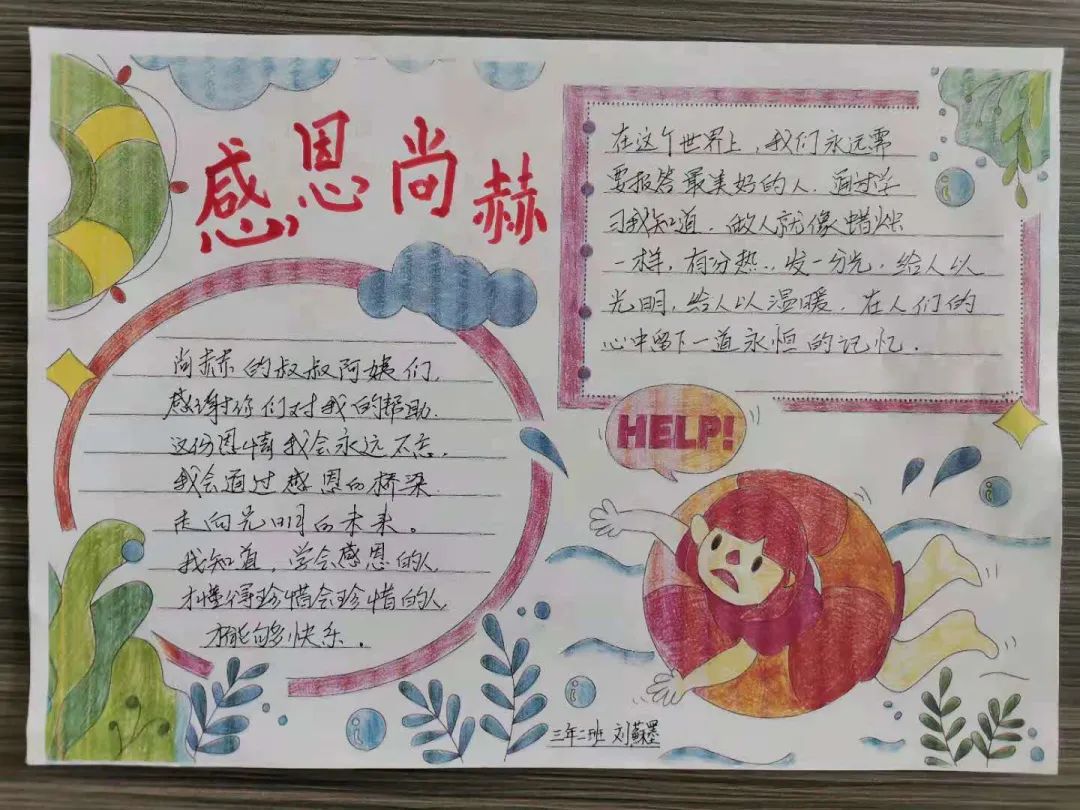 感恩尚赫
尚赫的叔叔阿姨们,
感谢你们对我的帮助.
这份恩情我会永远不忘.
我会通过感恩的桥梁
走向光明的未来。
我知道,学会感恩的人
才懂得珍惜会珍惜的人
才能够快乐.
在这个世界上,我们永远需
要报答最美好的人.通过学
习我知道.做人就像蜡烛
一样,有一分热..发一分光.给人以
光明,给人以温暖.在人们的
心中留下一道永恒的记忆.
HELP!
三年二班 刘蘇墨